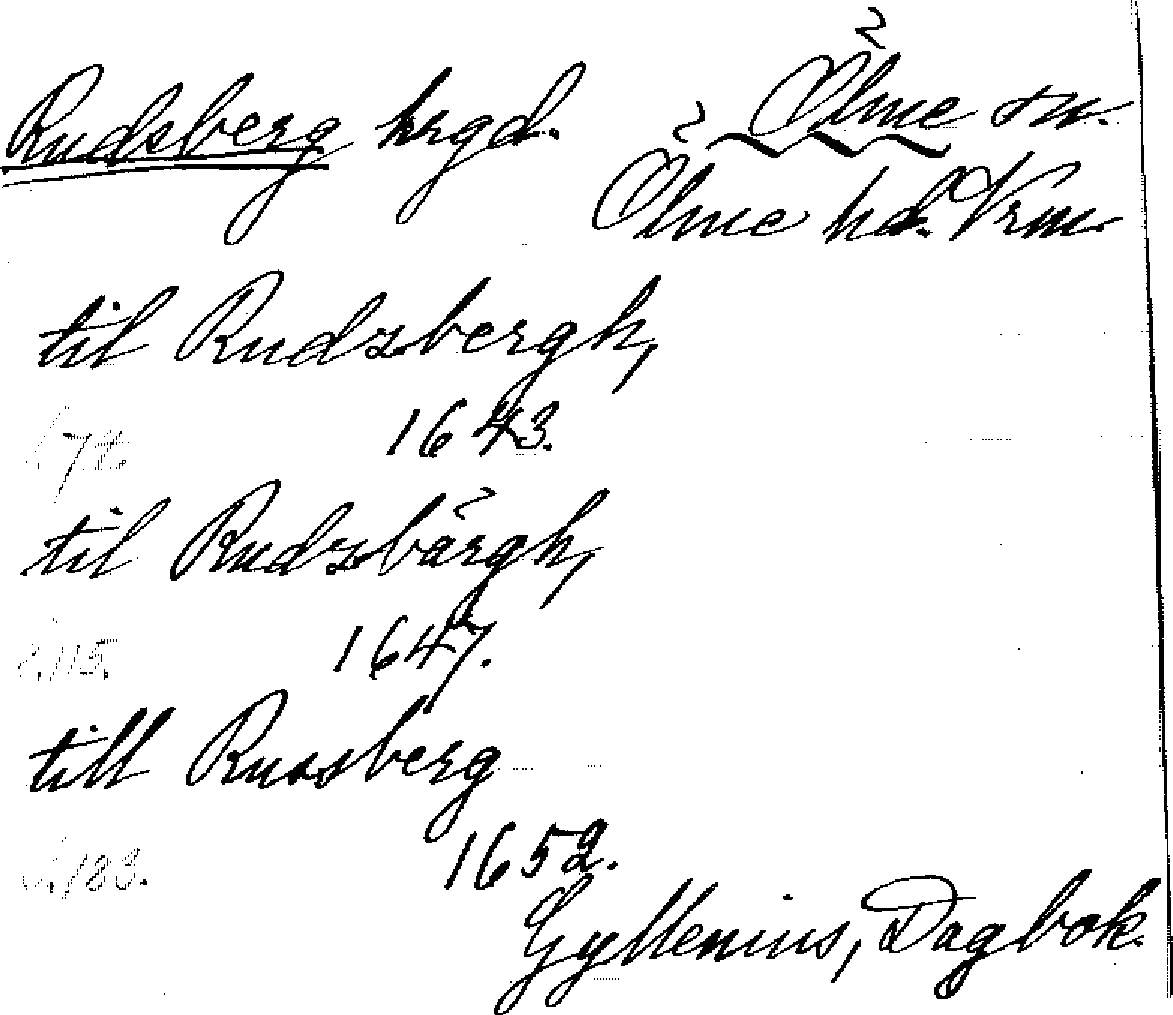 Rudsberg hrgd. Ölme sn.
Ölme hd. Vrm.
til Rudzbergh,
1643.
til Rudzbärgh,
s. 115. 1647.
till Russberg
s. 183. 1652.
Gyllenius, Dagbok.